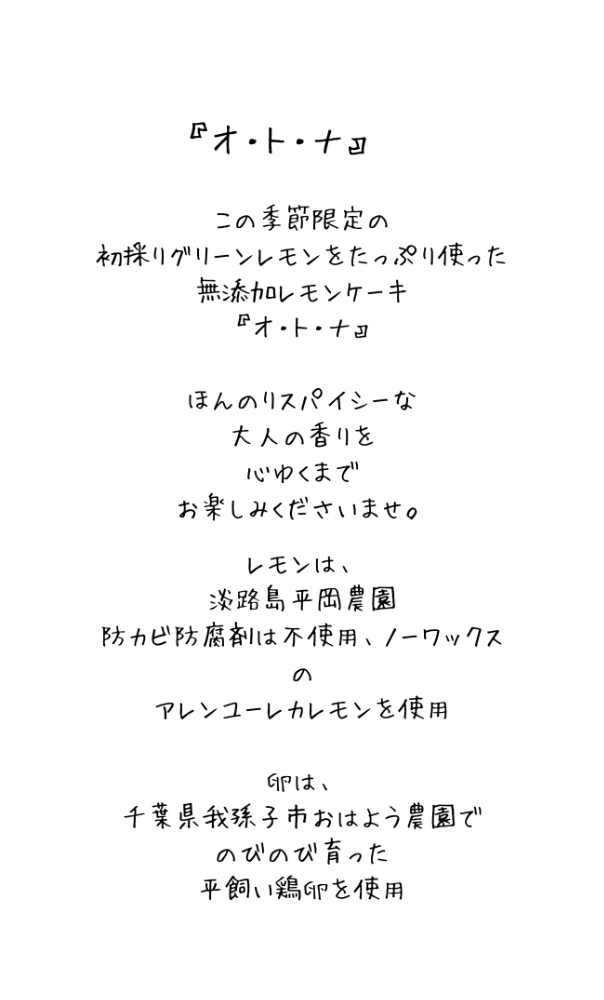 『オ・ト・ナ』
この季節限定の
初採りグリーンレモンをたっぷり使った
無添加レモンケーキ
『オ・ト・ナ』
ほんのりスパイシーな
大人の香りを
心ゆくまで
お楽しみくださいませ。
レモンは、
淡路島平岡農園
防カビ防腐剤は不使用、ノーワックス
の
アレンユーレカレモンを使用
卵は、
千葉県我孫子市おはよう農園で
のびのび育った
平飼い鶏卵を使用